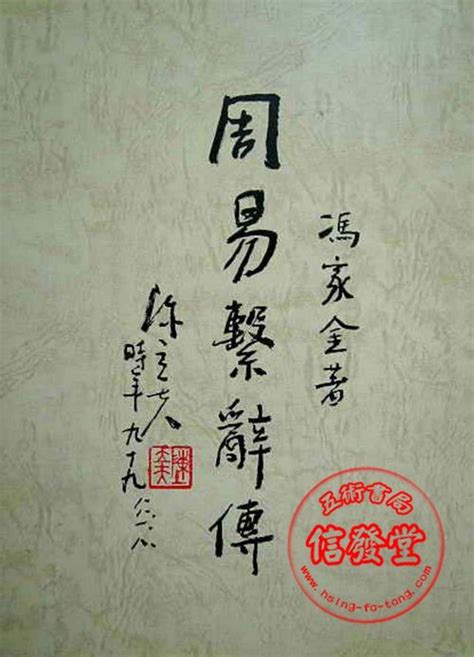 馮家金著
周易繫辭傳
陳立夫
時年九十九
五術書局
信發堂
www.hsing-fa-tang.com